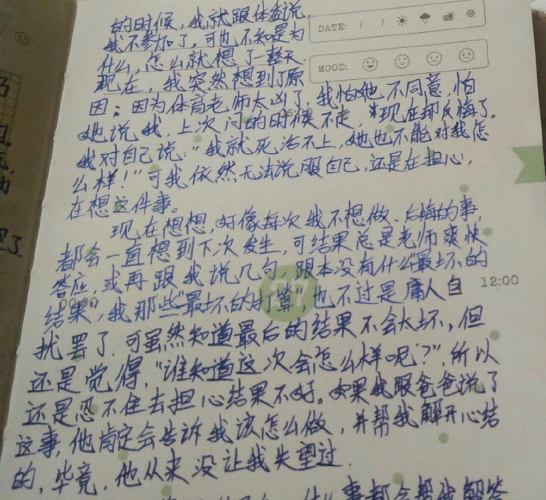 的时候，我就跟体委说，
我不参加了，可也不知是为
什么，怎么就想了一整天.
现在，我突然想到了原
因：因为体育老师太凶了，我怕她不同意，怕
她说我，上次问的时候不走，现在却反悔了。
我对自己说："我就死活不上，她也不能对我怎
么样！"可我依然无法说服自己，还是在担心，
在想这件事。
现在想想，好像每次我不想做、后悔的事，
都会一直想到下次发生，可结果总是老师爽快
答应，或再跟我说几句，跟本没有什么"最坏的
结果，我那些"最坏的打算"，也不过是庸人自
扰罢了.可虽然知道最后的结果不会太坏，但
还是觉得，"谁知道这次会怎么样呢？"，所以
还是忍不住去担心结果不好。如果我跟爸爸说了
这事，他肯定会告诉我该怎么做，并帮我解开心结
的，毕竟，他从来没让我失望过.
事都会帮我解答
DATE: / /
MOOD:
12:00